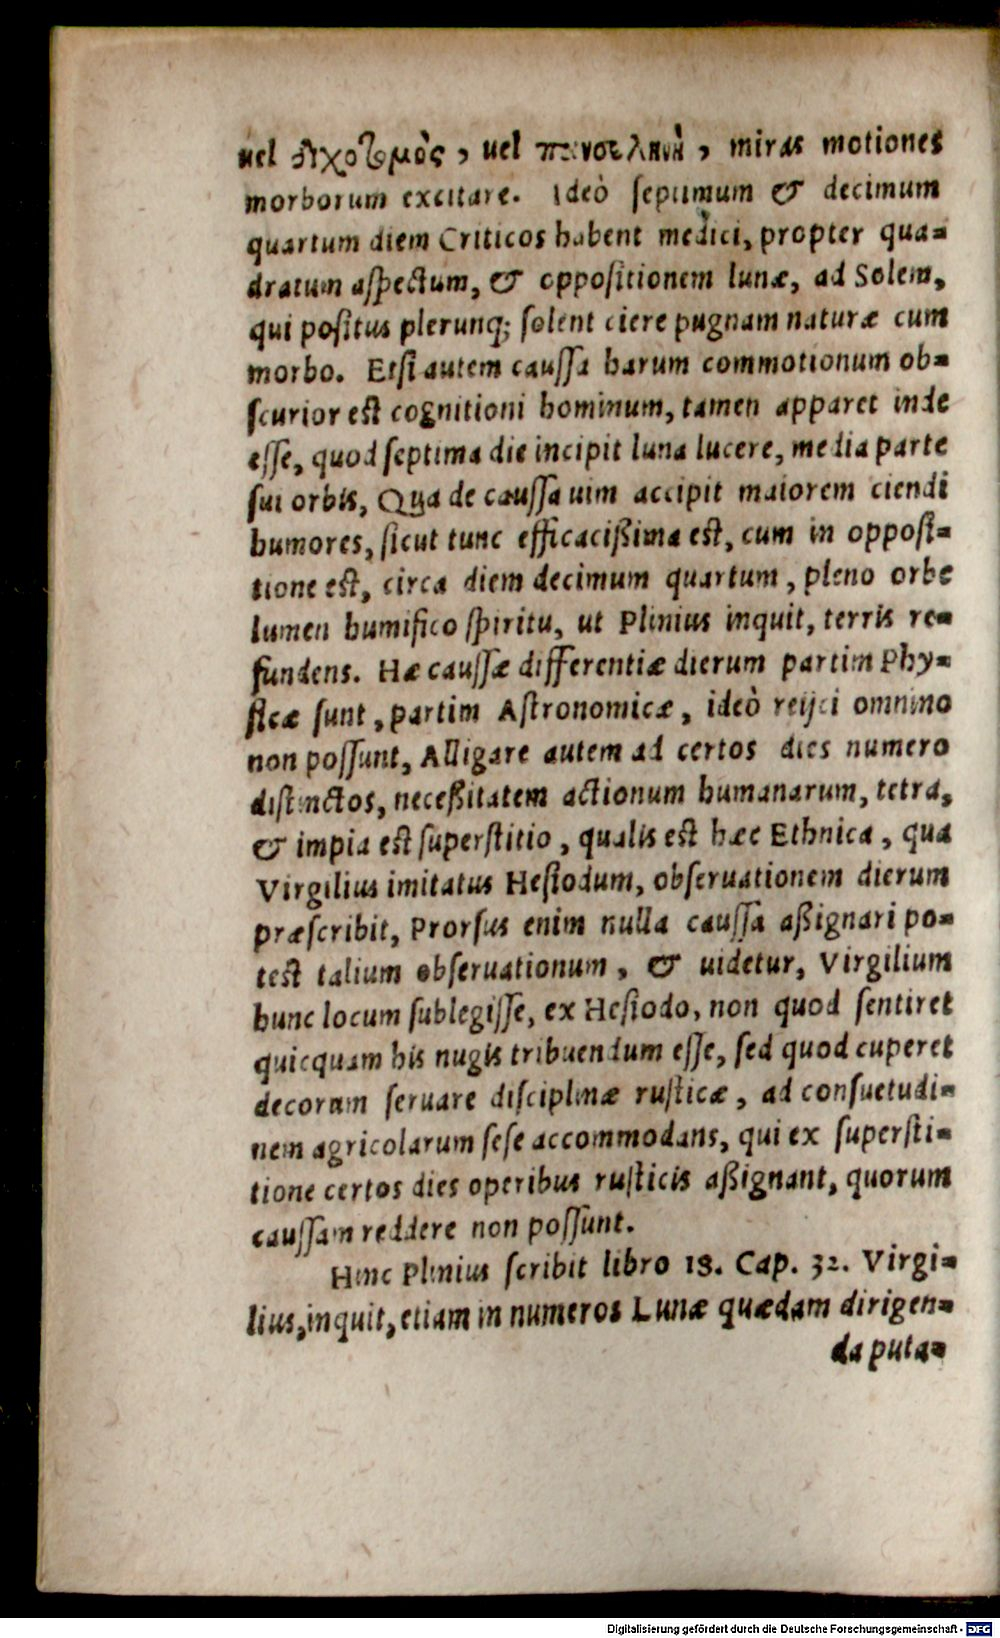 uel διχοτομὸς, uel πανσεληνὰ, miras motiones
morborum excitare. Ideò septimum & decimum
quartum diem Criticos habent medici, propter qua-
dratum aspectum, & oppositionem lunæ, ad Solem,
qui positus plerunq; solent ciere pugnam naturæ cum
morbo. Etsi autem caussa harum commotionum ob-
scurior est cognitioni hominum, tamen apparet inde
esse, quod septima die incipit luna lucere, media parte
sui orbis, Qua de caussa uim accipit maiorem ciendi
humores, sicut tunc efficacißima est, cum in opposi-
tione est, circa diem decimum quartum, pleno orbe
lumen humifico spiritu, ut Plinius inquit, terris re-
fundens. Hæ caussæ differentiæ dierum partim Phy-
sicæ sunt, partim Astronomicæ, ideò reijci omnino
non possunt, Alligare autem ad certos dies numero
distinctos, neceßitatem actionum humanarum, tetra,
& impia est superstitio, qualis est hæc Ethnica, qua
Virgilius imitatus Hesiodum, obseruationem dierum
præscribit, Prorsus enim nulla caussa aßignari po-
test talium obseruationum, & uidetur, Virgilium
hunc locum sublegisse, ex Hesiodo, non quod sentiret
quicquam his nugis tribuendum esse, sed quod cuperet
decorum seruare disciplinæ rusticæ, ad consuetudi-
nem agricolarum sese accommodans, qui ex supersti-
tione certos dies operibus rusticis aßignant, quorum
caussam reddere non possunt.
Hinc Plinius scribit libro 18. Cap. 32. Virgi-
lius, inquit, etiam in numeros Lunæ quædam dirigen-
da puta-
Digitalisierung gefördert durch die Deutsche Forschungsgemeinschaft - DFG